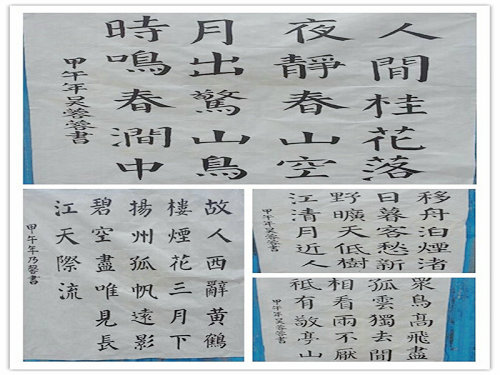 人間桂花落
夜靜春山空
月出驚山鳥
時鳴春澗中
甲午年吴蓉蓉書
故人西辭黄鶴
樓煙花三月下
揚州孤帆遠影
碧空盡唯見長
江天際流
甲午年乃馨書
移舟泊煙渚
日暮客愁新
野曠天低樹
江清月近人
甲午年吴蓉蓉書
衆鳥高飛盡
孤雲獨去閒
相看兩不厭
祗有敬亭山
甲午年吴蓉蓉書